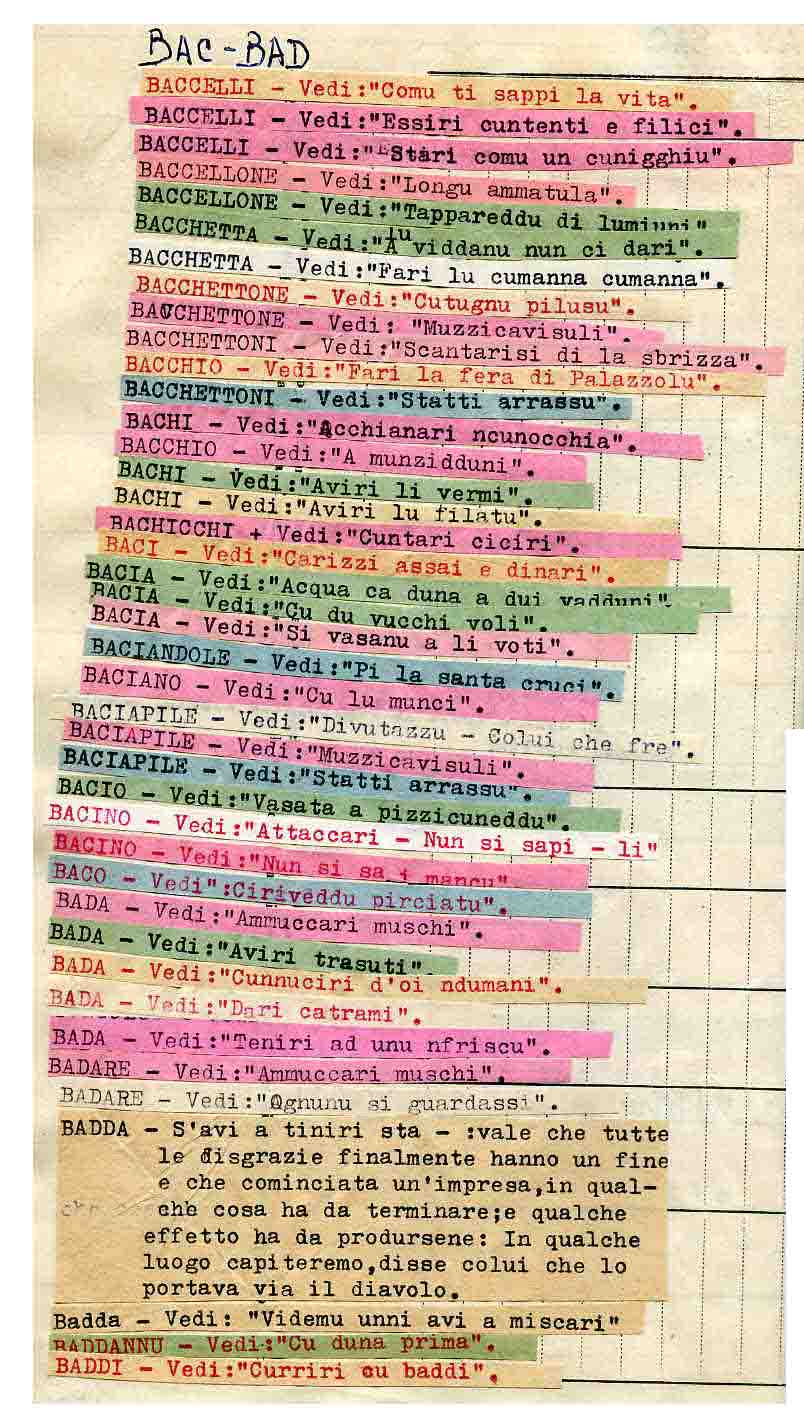 BAC-BAD
BACCELLI - Vedi:"Comu ti sappi la vita".
BACCELLI - Vedi:"Essiri cuntenti e filici".
BACCELLI - Vedi:"Stari comu un cunigghiu".
BACCELLONE - Vedi:"Longu ammatula".
BACCELLONE - Vedi:"Tappareddu di lumiuni"
BACCHETTA - Vedi:"A u viddanu nun ci dari".
BACCHETTA - Vedi:"Fari lu cumanna cumanna".
BACCHETTONE - Vedi:"Cutugnu pilusu".
BACCHETTONE - Vedi: "Muzzicavisuli".
BACCHETTONI - Vedi:"Scantarisi di la sbrizza".
BACCHIO - Vedi:"Fari la fera di Palazzolu".
BACCHETTONI - Vedi:"Statti arrassu".
BACHI - Vedi:"Acchianari ncunocchia".
BACCHIO - Vedi:"A munzidduni".
BACHI - Vedi:"Aviri li vermi".
BACHI - Vedi:"Aviri lu filatu".
BACHICCHI + Vedi:"Cuntari ciciri".
BACI - Vedi:"Carizzi assai e dinari".
BACIA - Vedi:"Acqua ca duna a dui vadduni".
BACIA - Vedi:"Cu du vucchi voli".
BACIA - Vedi:"Si vasanu a li voti".
BACIANDOLE - Vedi:"Pi la santa cruci".
BACIANO - Vedi:"Cu lu munci".
BACIAPILE - Vedi:"Divutazzu - Colui che fre".
BACIAPILE - Vedi:"Muzzicavisuli".
BACIAPILE - Vedi:"Statti arrassu".
BACIO - Vedi:"Vasata a pizzicuneddu".
BACINO - Vedi:"Attaccari - Nun si sapi - li"
BACINO - Vedi:"Nun si sa i mancu"
BACO - Vedi":Ciriveddu pirciatu".
BADA - Vedi:"Ammuccari muschi".
BADA - Vedi:"Aviri trasuti".
BADA - Vedi:"Cunnuciri d'oi ndumani".
BADA - Vedi:"Dari catrami".
BADA - Vedi:"Teniri ad unu nfriscu".
BADARE - Vedi:"Ammuccari muschi".
BADARE - Vedi:"Ognunu si guardassi".
BADDA - S'avi a tiniri sta - :vale che tutte
le disgrazie finalmente hanno un fine
e che cominciata un'impresa,in qual-
che cosa ha da terminare;e qualche
effetto ha da prodursene: In qualche
luogo capiteremo,disse colui che lo
portava via il diavolo.
Badda - Vedi: "Videmu unni avi a miscari"
BADDANNU - Vedi:"Cu duna prima".
BADDI - Vedi:"Curriri cu baddi".